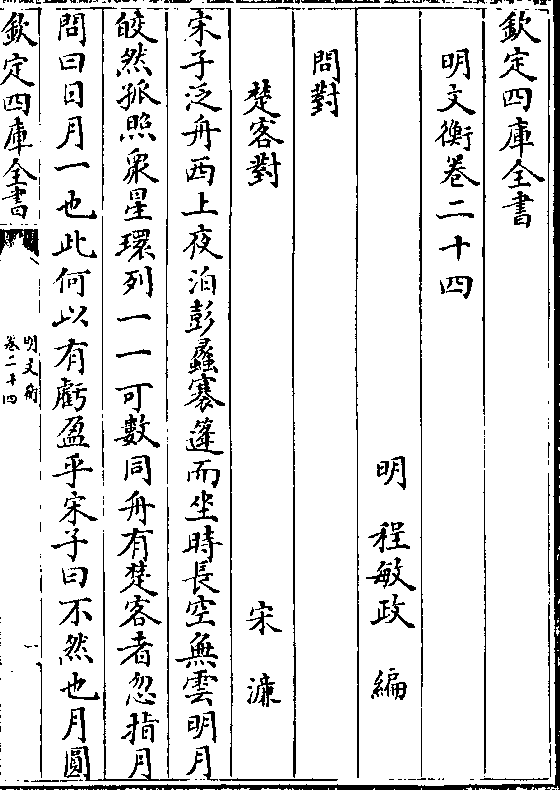 欽定四庫全書
明文衡卷二十四
明 程敏政 編
問對
楚客對 宋濂
宋子泛舟西上夜泊彭蠡褰篷而坐時長空無雲明月
皎然孤照衆星環列一一可數同舟有楚客者忽指月
問曰日月一也此何以有虧盈乎宋子曰不然也月圓
欽定四庫全書
明文衡
卷二十四
一